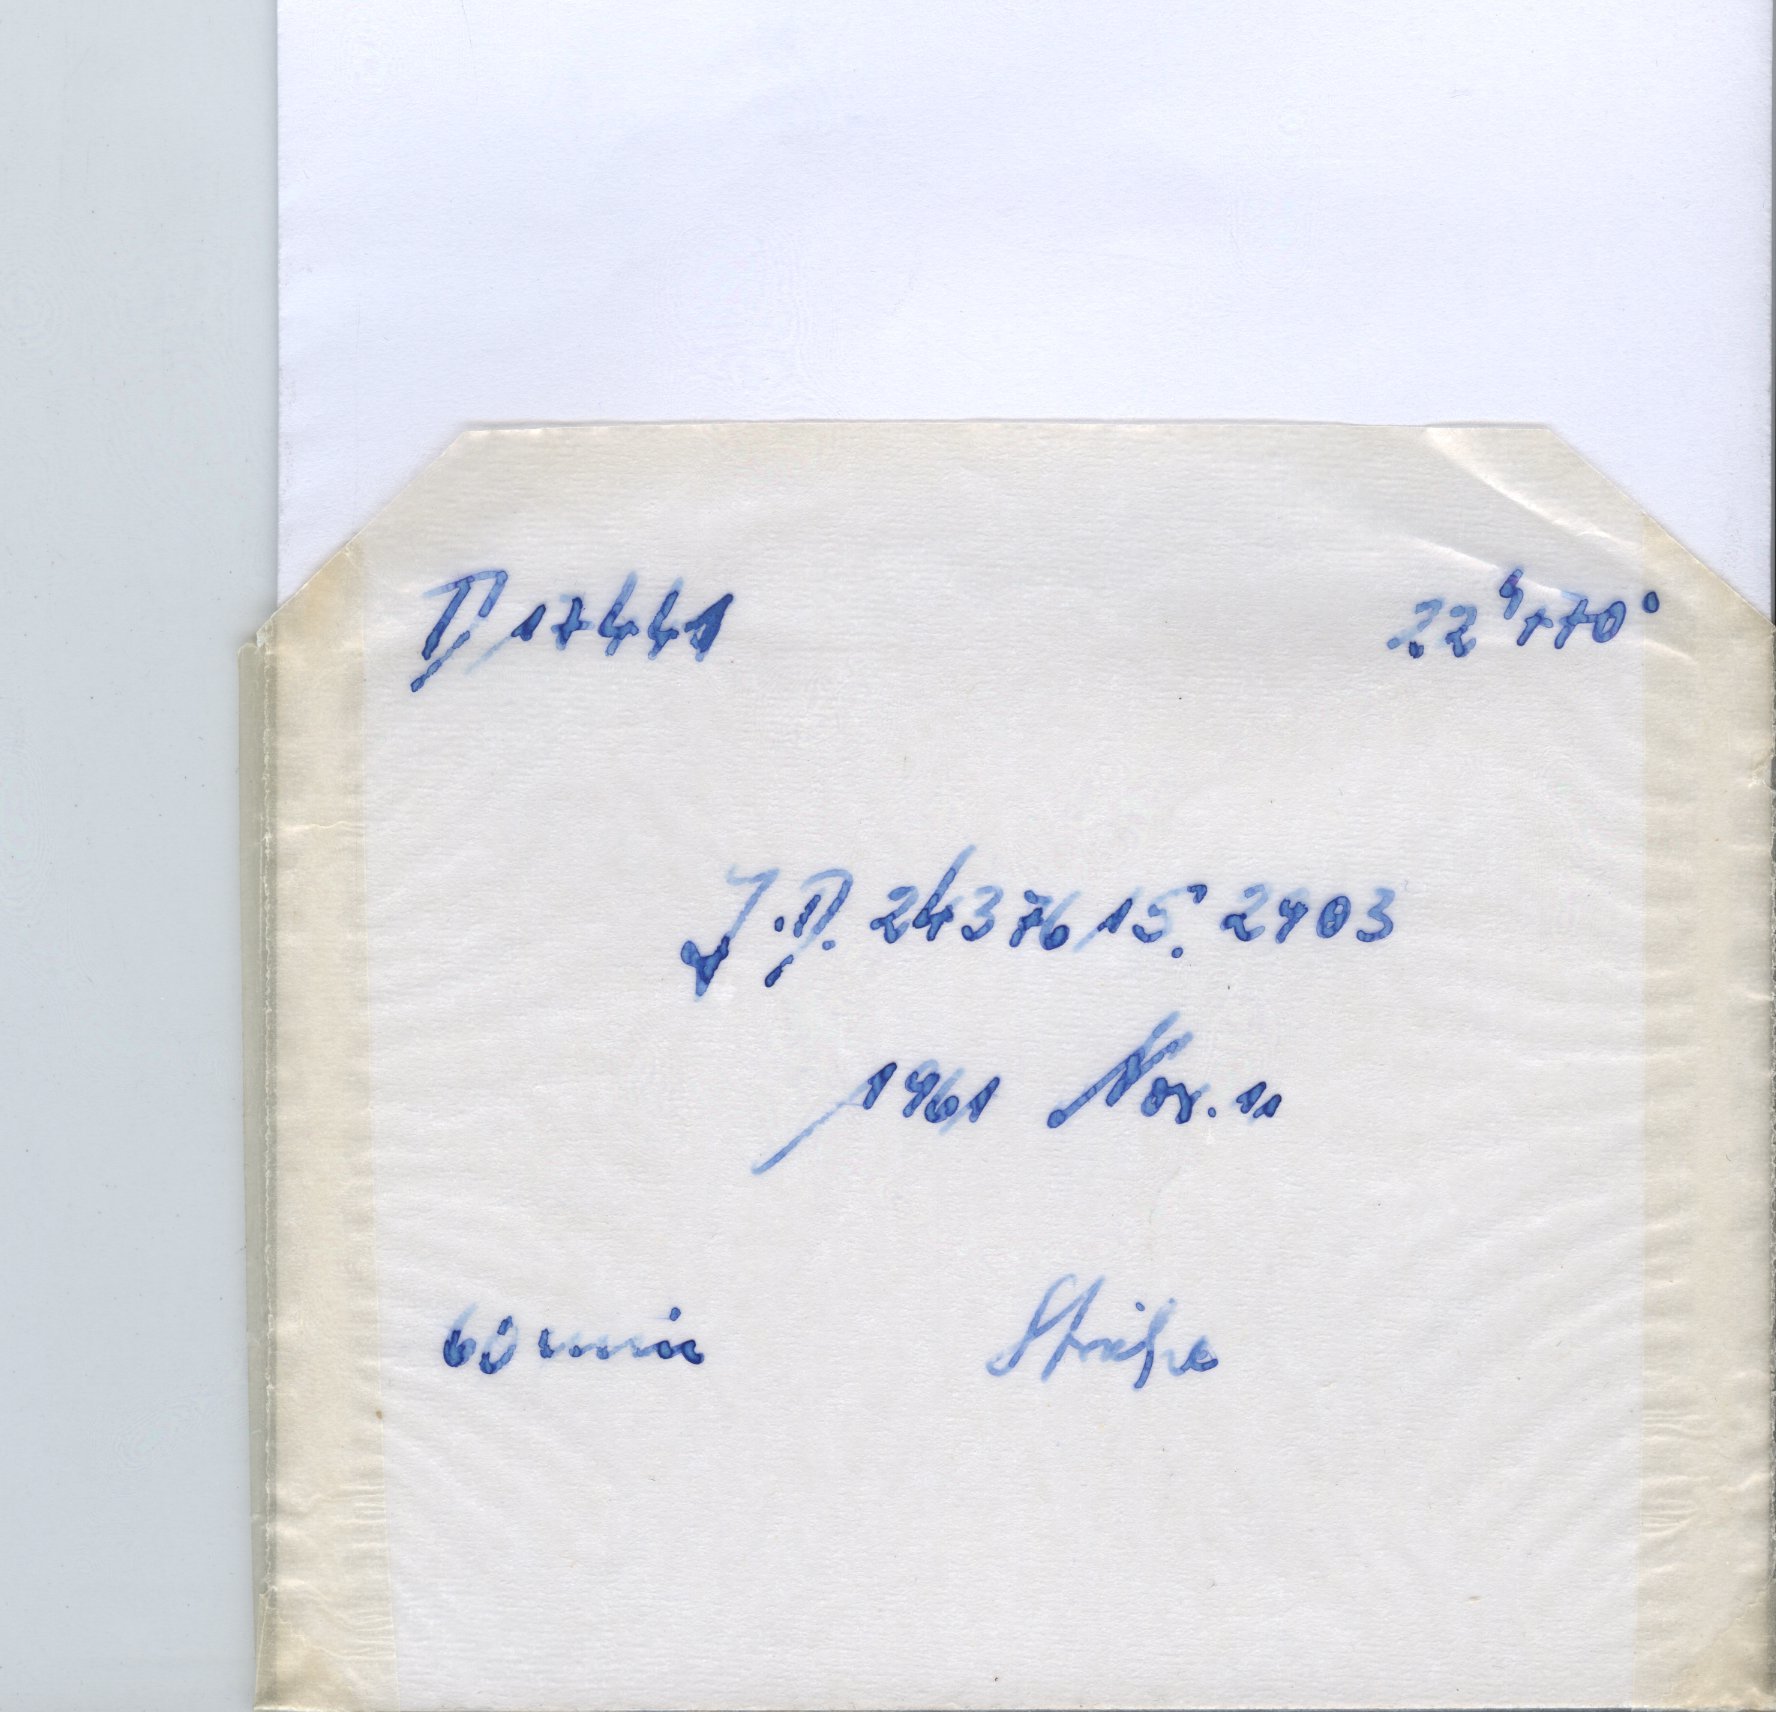 D 17441 22ʰ+70°
J.D. 2437615.2903
1961 Nov. 11
60 min